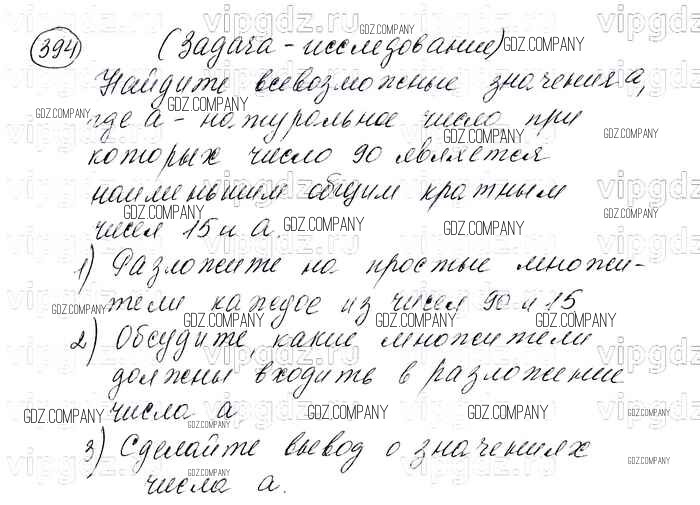 394 (Задача - исследование)
Найдите всевозможные значения a,
где a - натуральное число, при
которых число 90 является
наименьшим общим кратным
чисел 15 и a.
1) Разложите на простые множи-
тели каждое из чисел 90 и 15
2) Обсудите, какие множители
должны входить в разложение
числа a
3) Сделайте вывод о значениях
числа a.
vipgdz.ru
GDZ.COMPANY